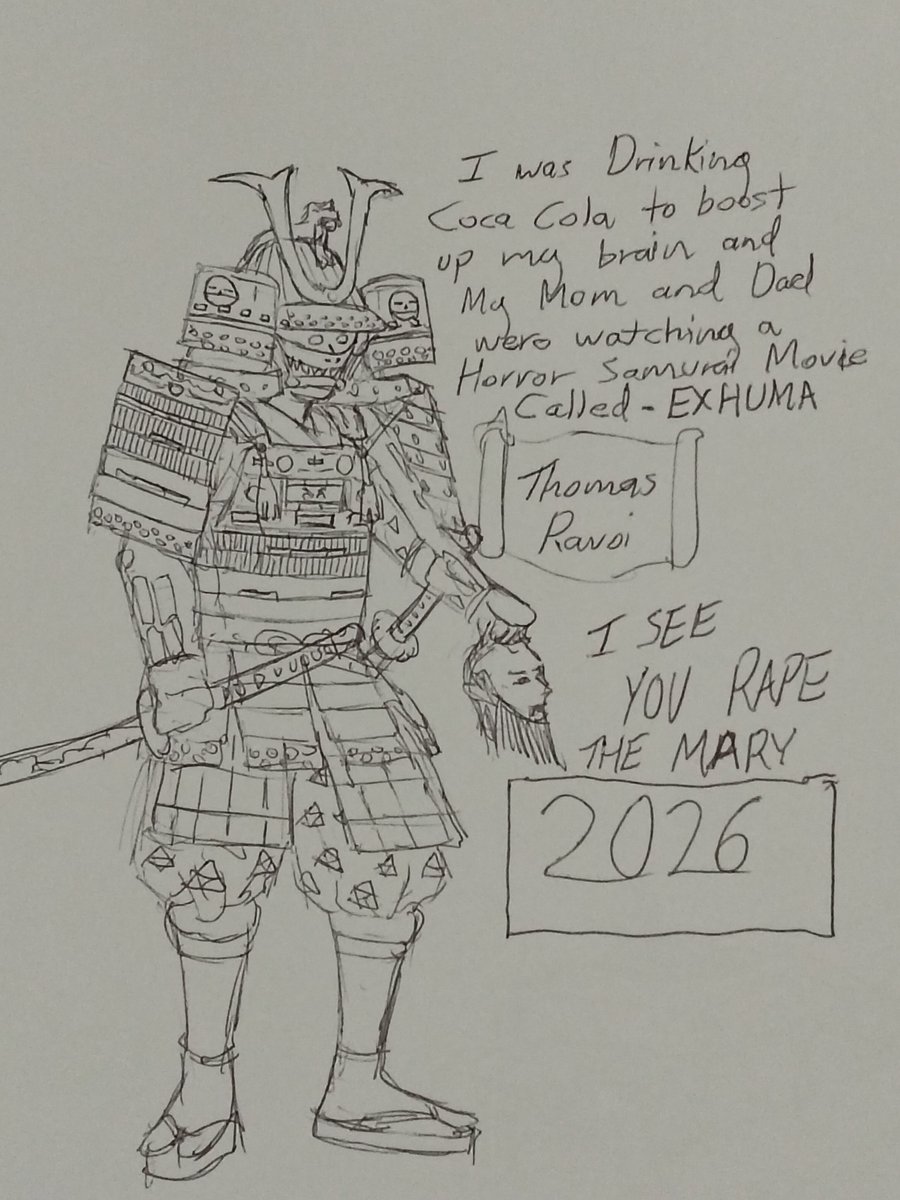 I was Drinking
Coca Cola to boost
up my brain and
My Mom and Dad
were watching a
Horror Samurai Movie
Called - EXHUMA
Thomas
Ravoi
I SEE
YOU RAPE
THE MARY
2026